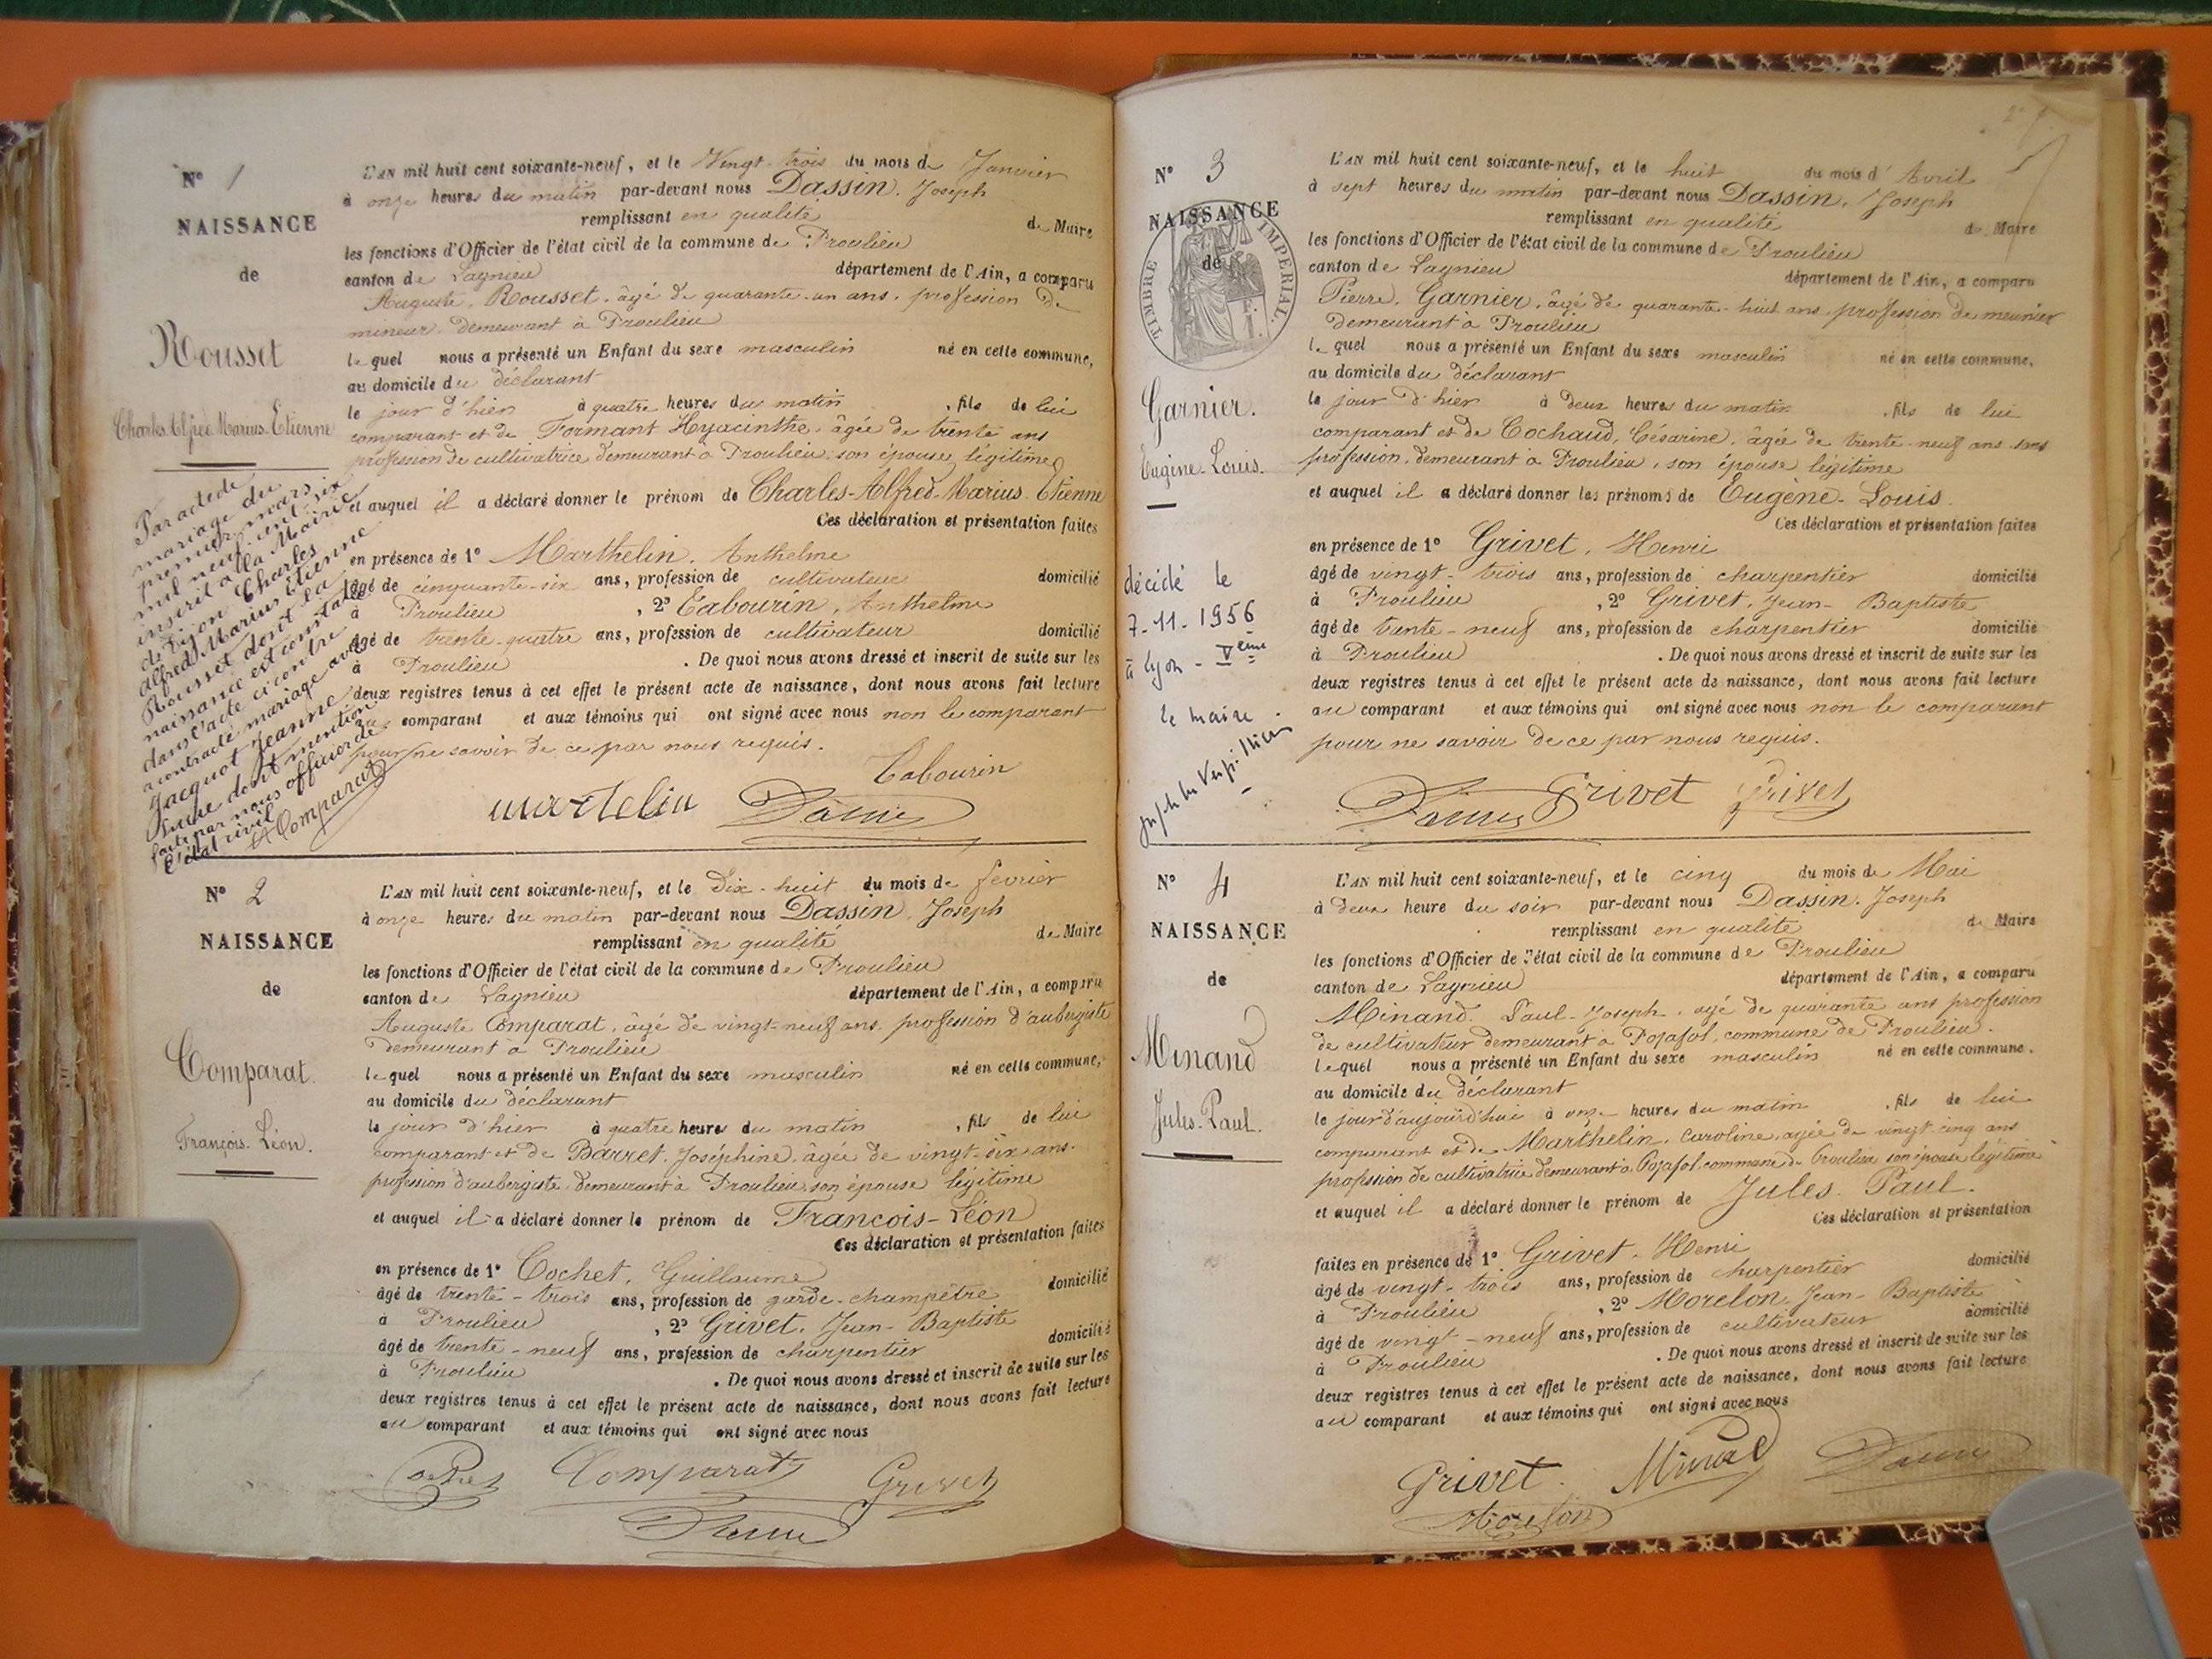 N° 1
NAISSANCE
de
Rousset
Charles Alfred Marius Etienne
Par acte de
mariage du
premier mars
mil neuf cent six
inscrit à la Mairie
de Dijon Charles
Alfred Marius Etienne
Rousset dont la
naissance est constatée
dans l'acte ci contre
a contracté mariage avec
Jacquot Jeanne
dont mention
faite par nous officier de
l'état civil
A Comparat
L'AN mil huit cent soixante-neuf, et le Vingt-trois du mois de Janvier
à onze heures du matin par-devant nous Dassin, Joseph
remplissant en qualité de Maire
les fonctions d'Officier de l'état civil de la commune de Proulieu
canton de Lagnieu département de l'Ain, a comparu
Auguste, Rousset, âgé de quarante-un ans, profession de
mineur, demeurant à Proulieu
lequel nous a présenté un Enfant du sexe masculin né en cette commune,
au domicile du déclarant
le jour d'hier à quatre heures du matin, fils de lui
comparant et de Formant Hyacinthe, âgée de trente ans
profession de cultivatrice demeurant à Proulieu, son épouse légitime
et auquel il a déclaré donner le prénom de Charles-Alfred-Marius-Etienne
Ces déclaration et présentation faites
en présence de 1° Marthelin, Anthelme
âgé de cinquante-six ans, profession de cultivateur domicilié
à Proulieu, 2° Cabourin, Anthelme
âgé de trente-quatre ans, profession de cultivateur domicilié
à Proulieu. De quoi nous avons dressé et inscrit de suite sur les
deux registres tenus à cet effet le présent acte de naissance, dont nous avons fait lecture
au comparant et aux témoins qui ont signé avec nous non le comparant
pour ne savoir de ce par nous requis.
Cabourin
martelin Dassin
N° 2
NAISSANCE
de
Comparat
François-Léon.
L'AN mil huit cent soixante-neuf, et le Dix-huit du mois de février
à onze heures du matin par-devant nous Dassin, Joseph
remplissant en qualité de Maire
les fonctions d'Officier de l'état civil de la commune de Proulieu
canton de Lagnieu département de l'Ain, a comparu
Auguste Comparat, âgé de vingt-neuf ans, profession d'aubergiste
demeurant à Proulieu
lequel nous a présenté un Enfant du sexe masculin né en cette commune,
au domicile du déclarant
le jour d'hier à quatre heures du matin, fils de lui
comparant et de Barret, Joséphine, âgée de vingt-six ans.
profession d'aubergiste demeurant à Proulieu, son épouse légitime
et auquel il a déclaré donner le prénom de François-Léon
Ces déclaration et présentation faites
en présence de 1° Cochet, Guillaume
âgé de trente-trois ans, profession de garde-champêtre domicilié
à Proulieu, 2° Grivet, Jean-Baptiste
âgé de trente-neuf ans, profession de charpentier domicilié
à Proulieu. De quoi nous avons dressé et inscrit de suite sur les
deux registres tenus à cet effet le présent acte de naissance, dont nous avons fait lecture
au comparant et aux témoins qui ont signé avec nous
Cochet Comparat Grivet
Dassin
N° 3
NAISSANCE
de
TIMBRE IMPERIAL
Garnier.
Eugène-Louis.
décédé le
7-11-1956
à Lyon - Vème
le maire.
L'AN mil huit cent soixante-neuf, et le huit du mois d'Avril
à sept heures du matin par-devant nous Dassin, Joseph
remplissant en qualité de Maire
les fonctions d'Officier de l'état civil de la commune de Proulieu
canton de Lagnieu département de l'Ain, a comparu
Pierre, Garnier, âgé de quarante-huit ans, profession de meunier
demeurant à Proulieu
lequel nous a présenté un Enfant du sexe masculin né en cette commune.
au domicile du déclarant
le jour d'hier à deux heures du matin, fils de lui
comparant et de Cochaud, Césarine, âgée de trente-neuf ans sans
profession, demeurant à Proulieu, son épouse légitime
et auquel il a déclaré donner les prénoms de Eugène-Louis.
Ces déclaration et présentation faites
en présence de 1° Grivet, Henri
âgé de vingt-trois ans, profession de charpentier domicilié
à Proulieu, 2° Grivet, Jean-Baptiste
âgé de trente-neuf ans, profession de charpentier domicilié
à Proulieu. De quoi nous avons dressé et inscrit de suite sur les
deux registres tenus à cet effet le présent acte de naissance, dont nous avons fait lecture
au comparant et aux témoins qui ont signé avec nous non le comparant
pour ne savoir de ce par nous requis.
Dassin Grivet Grivet
N° 4
NAISSANCE
de
Minand
Jules-Paul.
L'AN mil huit cent soixante-neuf, et le cinq du mois de Mai
à deux heure du soir par-devant nous Dassin, Joseph
remplissant en qualité de Maire
les fonctions d'Officier de l'état civil de la commune de Proulieu
canton de Lagnieu département de l'Ain, a comparu
Minand Paul-Joseph, âgé de quarante ans profession
de cultivateur demeurant à Pojafol, commune de Proulieu.
lequel nous a présenté un Enfant du sexe masculin né en cette commune.
au domicile du déclarant
le jour d'aujourd'hui à onze heures du matin, fils de lui
comparant et de Marthelin, Caroline, âgée de vingt-cinq ans
profession de cultivatrice demeurant à Pojafol, commune de Proulieu son épouse légitime
et auquel il a déclaré donner le prénom de Jules Paul.
Ces déclaration et présentation
faites en présence de 1° Grivet, Henri
âgé de vingt-trois ans, profession de charpentier domicilié
à Proulieu, 2° Morelon, Jean-Baptiste
âgé de vingt-neuf ans, profession de cultivateur domicilié
à Proulieu. De quoi nous avons dressé et inscrit de suite sur les
deux registres tenus à cet effet le présent acte de naissance, dont nous avons fait lecture
au comparant et aux témoins qui ont signé avec nous
Grivet. Minand Dassin
Morelon